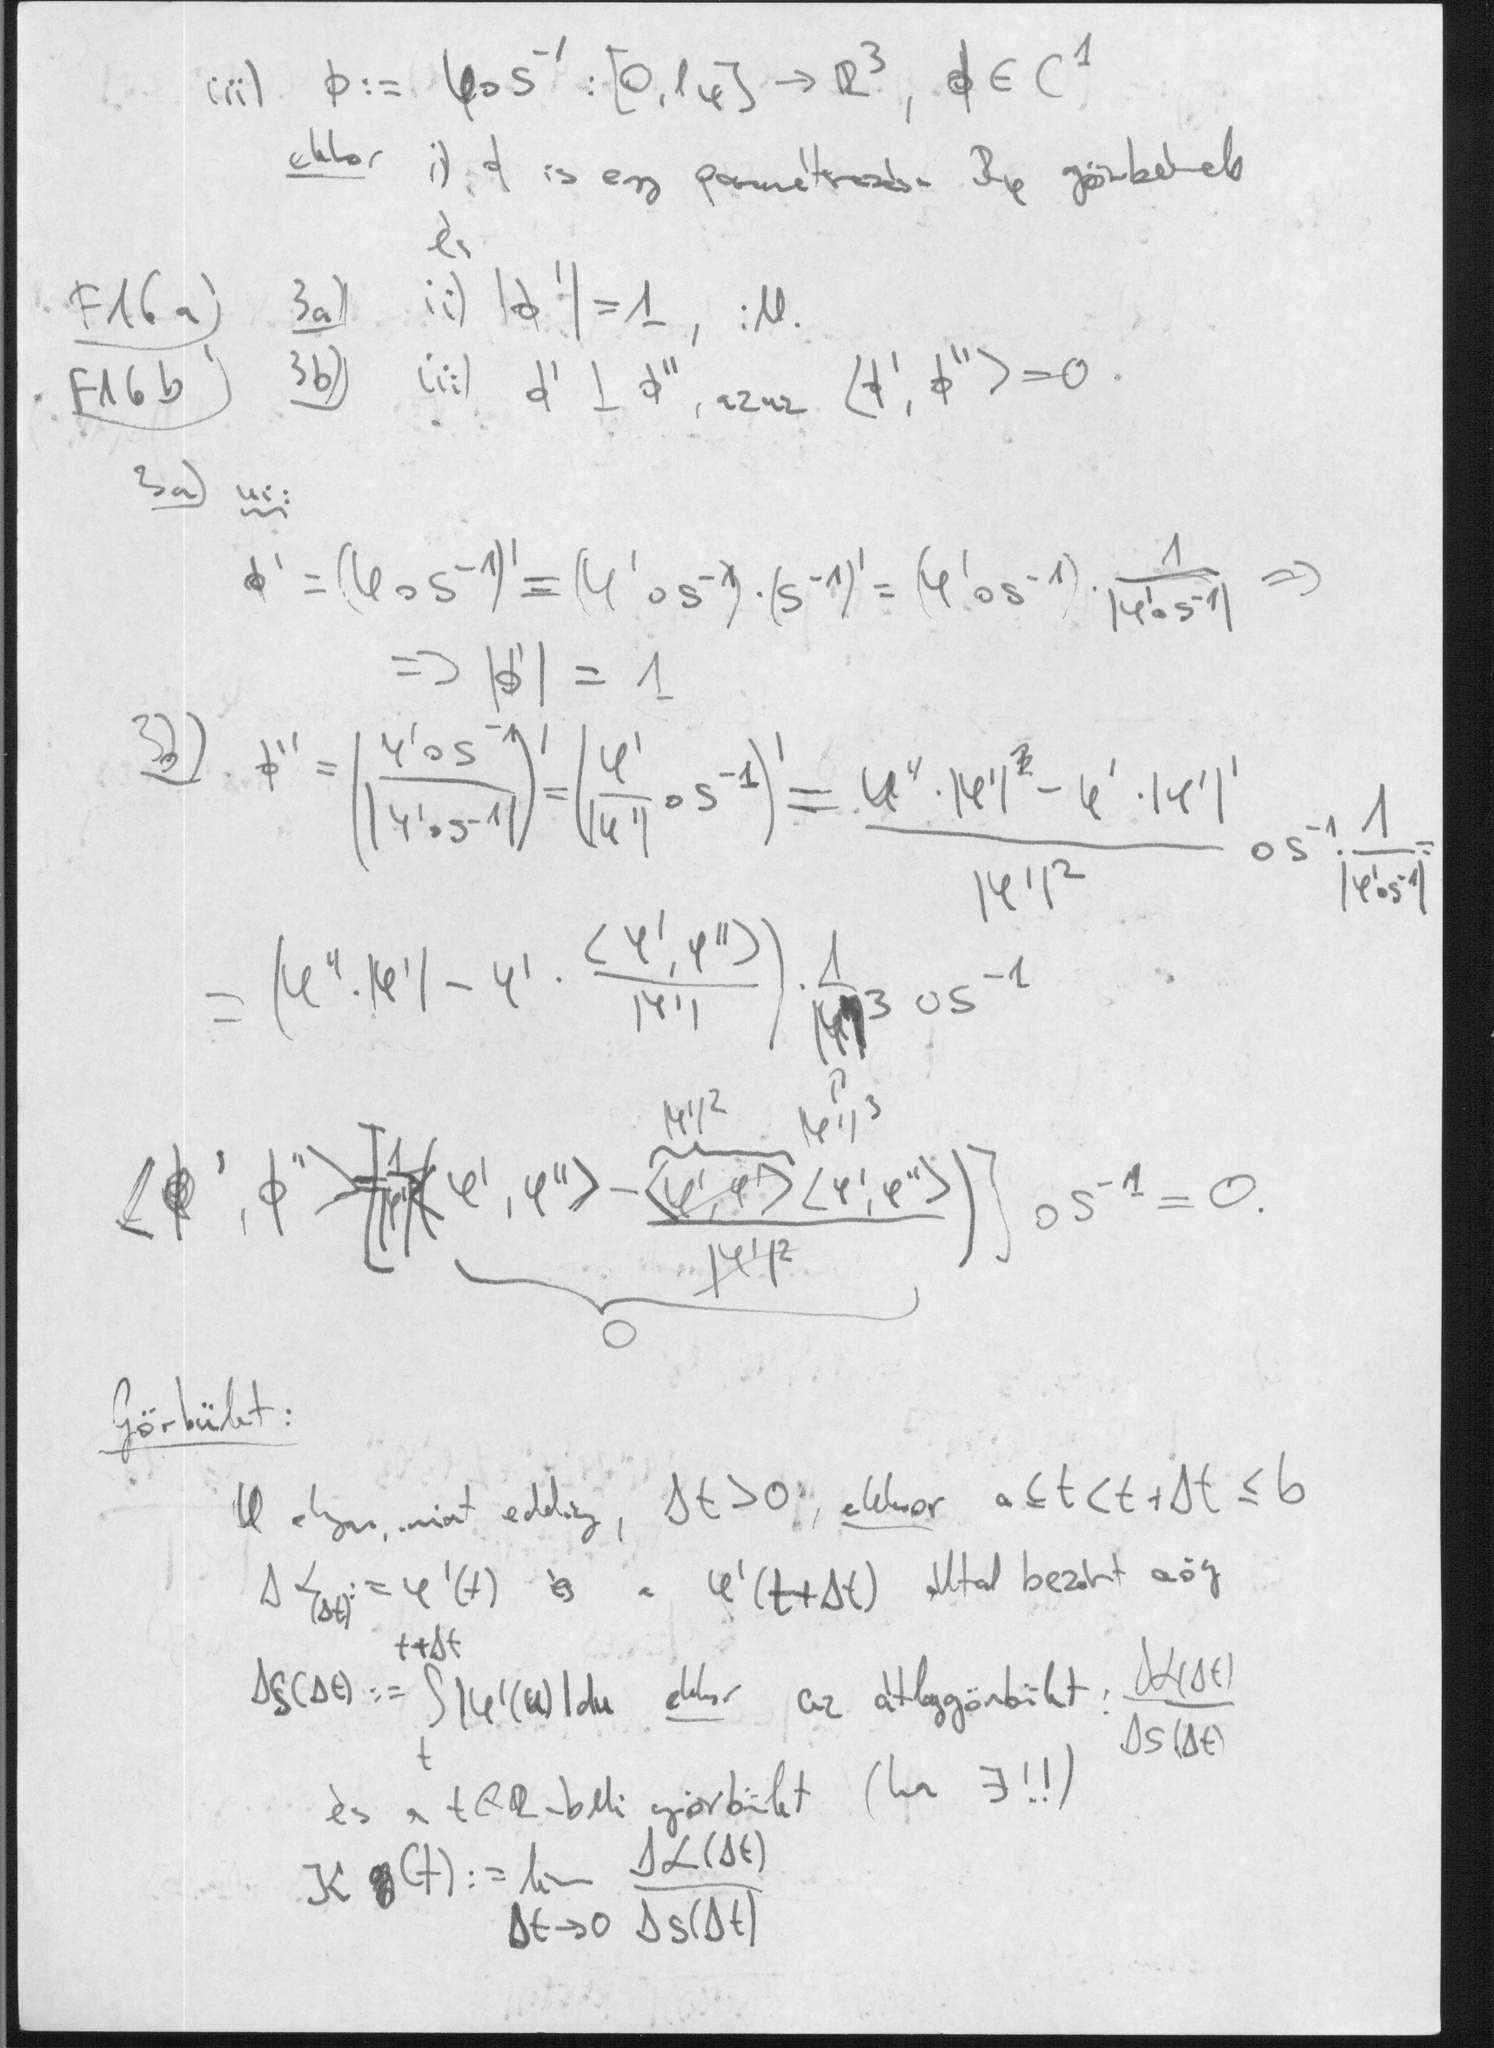 iii) ϕ := φ∘s⁻¹ : [0, l_φ] → ℝ³, ϕ ∈ C¹
ekkor i) ϕ is egy paraméterezése Γ_φ görbének
és
F16a) 3a) ii) |ϕ'| = 1, ill.
F16b) 3b) iii) ϕ' ⊥ ϕ'', azaz ⟨ϕ', ϕ''⟩ = 0.
3a) ui:
ϕ' = (φ∘s⁻¹)' = (φ'∘s⁻¹)·(s⁻¹)' = (φ'∘s⁻¹)· 1/|φ'∘s⁻¹| ⇒
⇒ |ϕ'| = 1
3b) ϕ'' = (φ'∘s⁻¹/|φ'∘s⁻¹|)' = (φ'/|φ'| ∘s⁻¹)' = (φ''·|φ'| - φ'·|φ'|')/|φ'|² ∘s⁻¹ · 1/|φ'∘s⁻¹| =
= (φ''·|φ'| - φ'· ⟨φ', φ''⟩/|φ'|) · 1/|φ'|³ ∘s⁻¹
|φ'|² |φ'|³
⟨ϕ', ϕ''⟩ = [1/|φ'|³ (⟨φ', φ''⟩ - ⟨φ', φ'⟩⟨φ', φ''⟩/|φ'|²)] ∘s⁻¹ = 0.
0
Görbület:
φ olyan, mint eddig, Δt > 0, ekkor a ≤ t < t+Δt ≤ b
Δα(Δt) := φ'(t) és a φ'(t+Δt) által bezárt szög
Δs(Δt) := ∫_t^{t+Δt} |φ'(u)|du ekkor az átlaggörbület: Δα(Δt)/Δs(Δt)
és a t∈ℝ-beli görbület (ha ∃!!)
K(t) := lim_{Δt→0} Δα(Δt)/Δs(Δt)